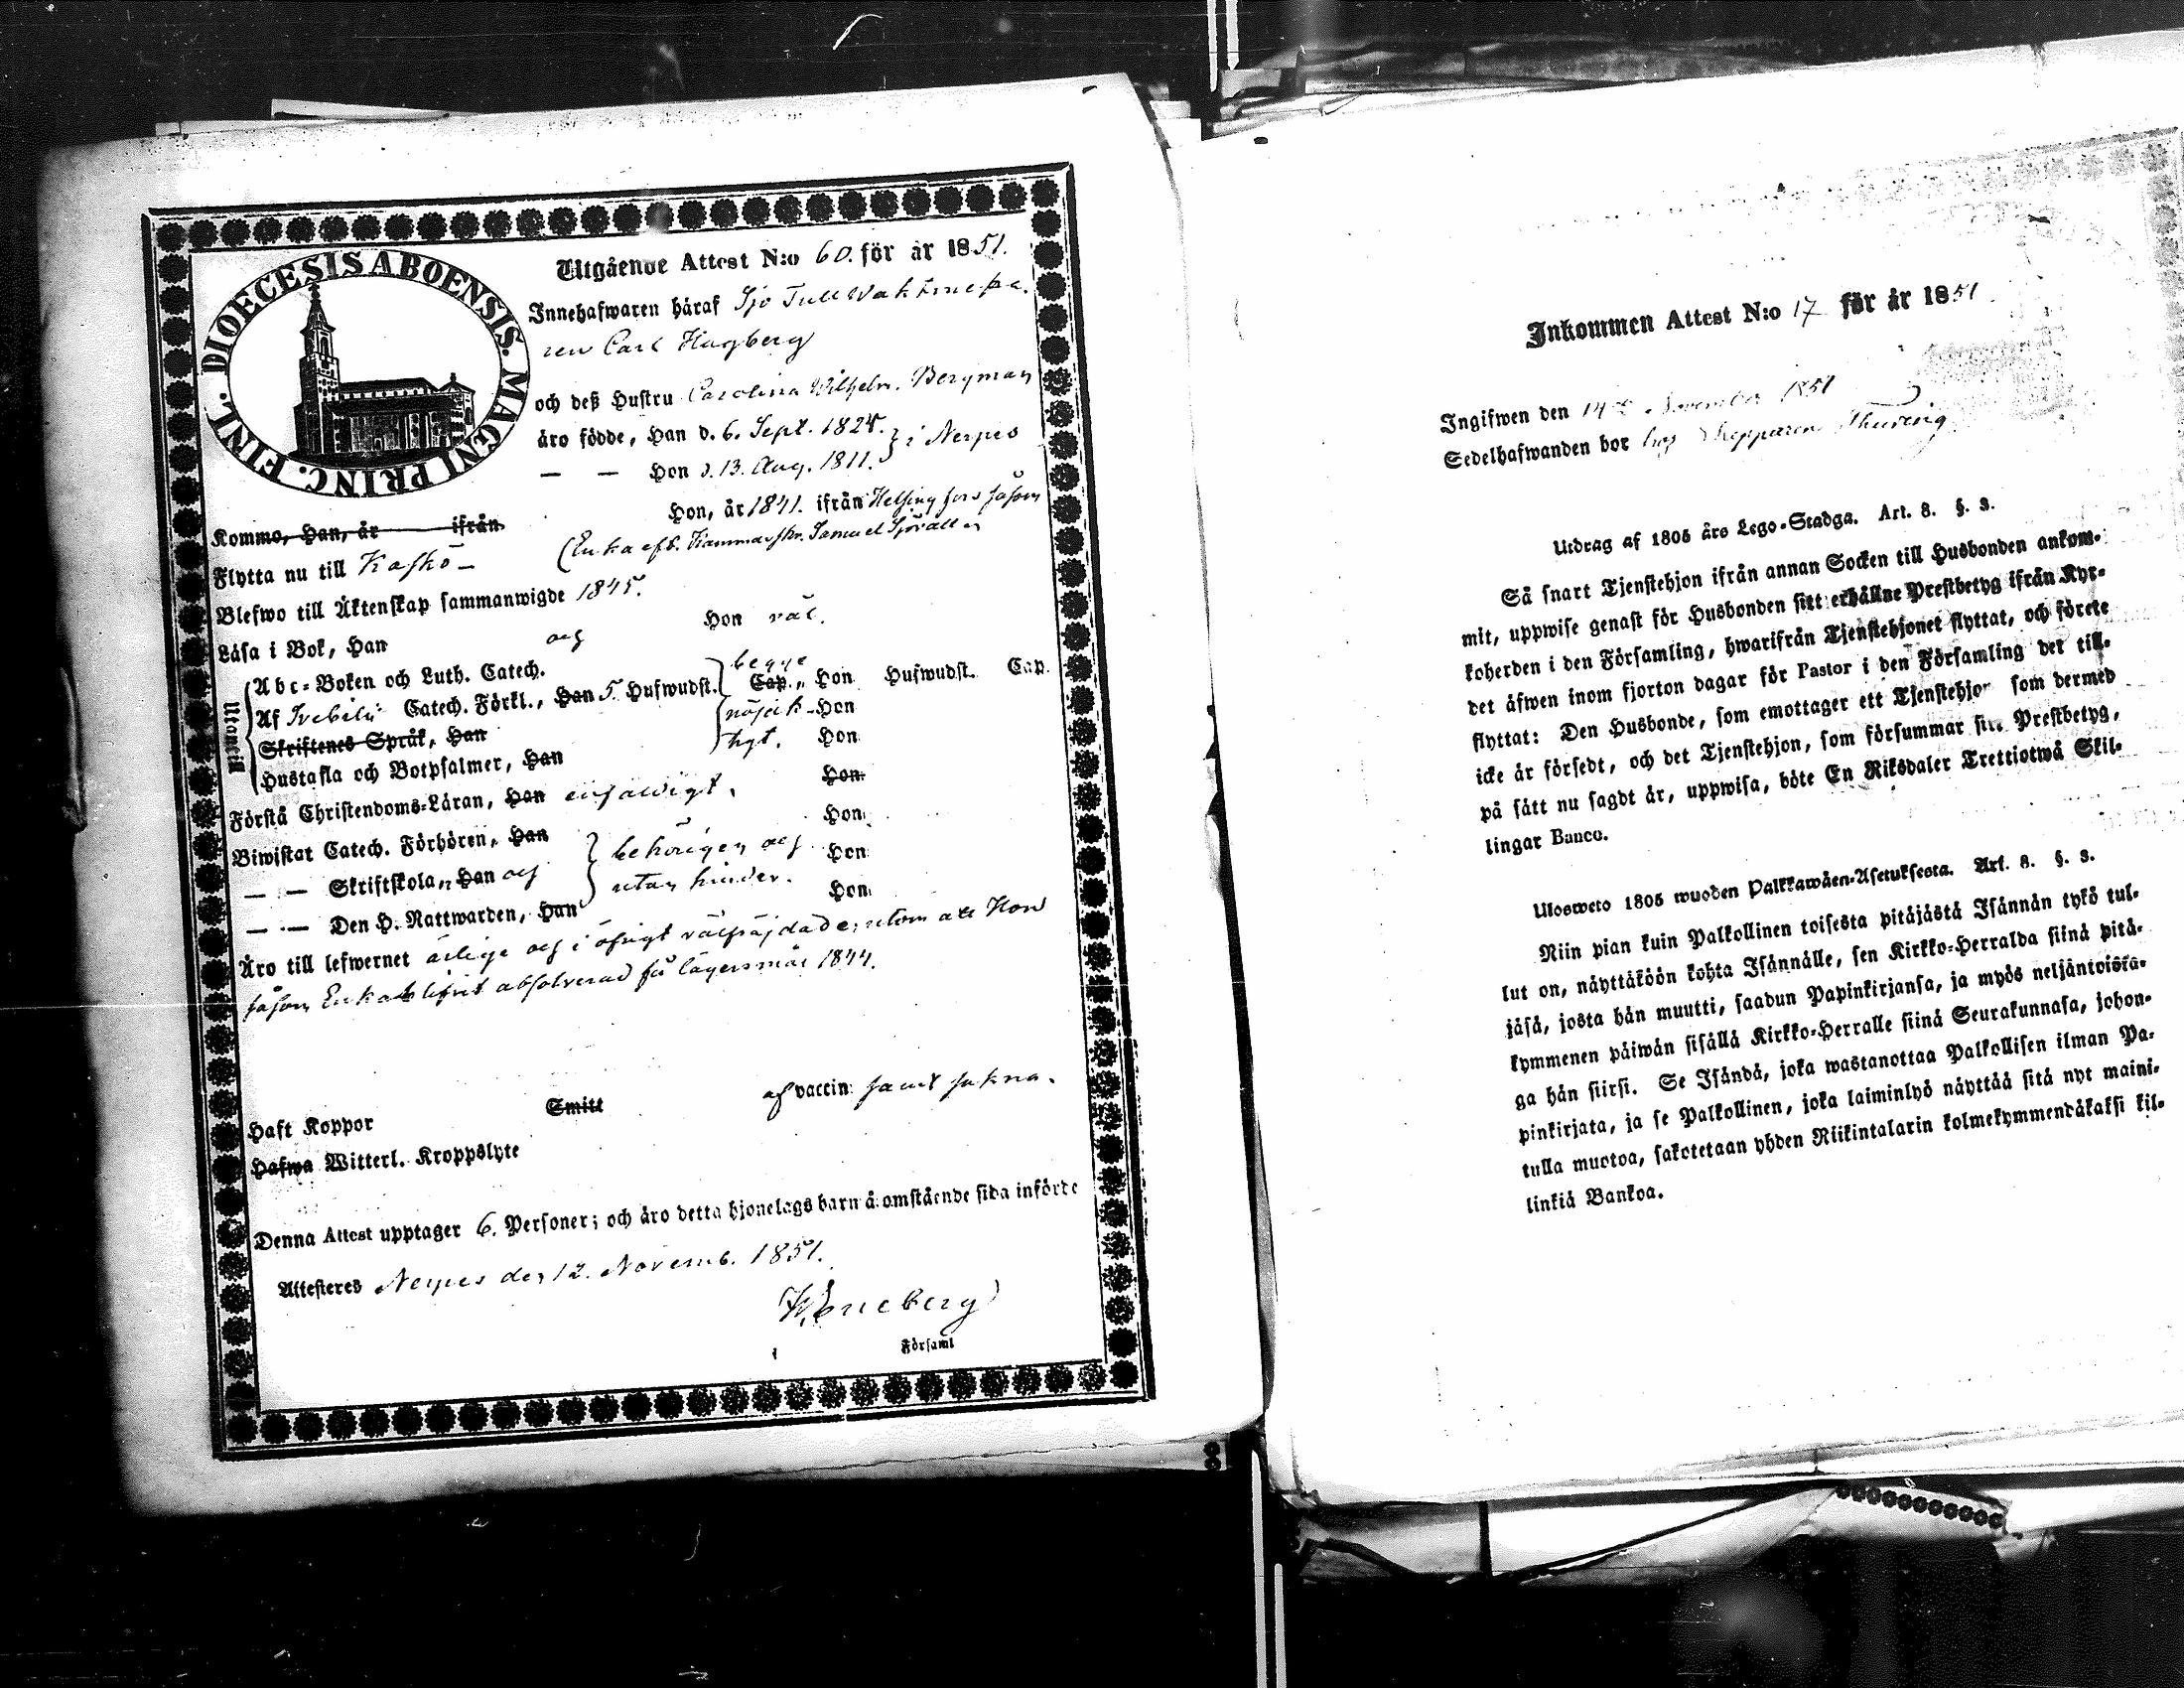 DIOECESIS ABOENSIS. MAGNI PRINC. FINL.
Utgående Attest N:o 60. för år 1851.
Innehafwaren häraf Sjö Tull Waktmästa-
ren Carl Hagberg
och deß Hustru Carolina Wilhelm. Bergman
äro födde, Han d. 6. Sept. 1825. } i Nerpes
— — Hon d. 13. Aug. 1811.
Komme, Han, år ifrån Hon, år 1841. ifrån Helsingfors såsom
Flytta nu till Kaskö – (Enka eft. Kammarskr. Samuel Sjövall
Blefwo till Äktenskap sammanwigde 1845.
Läsa i Bok, Han och Hon väl.
Utantill
Abc-Boken och Luth. Catech.
Af Svebelii Catech. Förkl., Han 5. Hufwudst. begge Cap. „ Hon Hufwudst. Cap.
Skriftenes Språk, Han nöjak- Hon
Hustafla och Botpsalmer, Han tigt. Hon
Förstå Christendoms-Läran, Han enfaldigt. Hon
Biwistat Catech. Förhören, Han Hon
— — Skriftskola, Han och behörigen och Hon
— — Den H. Nattwarden, Han utan hinder. Hon
Äro till lefwernet ärlige och i öfrigt välfräjdade, utom att Hon
såsom Enka blifvit absolverad för lägersmål 1844.
Haft Koppor Smitt af vaccin: samt sakna.
Hafwa Witterl. Kroppslyte
Denna Attest upptager 6. Personer; och äro detta hjonelags barn å omstående sida införde
Attesteres Nerpes den 12. Novemb. 1851.
Församl
Inkommen Attest N:o 17 för år 1851
Ingifwen den 14 November 1851
Sedelhafwanden bor hos Skepparen Thuring
Utdrag af 1805 års Lego-Stadga. Art. 8. §. 3.
Så snart Tjenstehjon ifrån annan Socken till Husbonden ankom-
mit, uppwise genast för Husbonden sitt erhållne Prestbetyg ifrån Kyr-
koherden i den Församling, hwarifrån Tjenstehjonet flyttat, och förete
det äfwen inom fjorton dagar för Pastor i den Församling det till-
flyttat: Den Husbonde, som emottager ett Tjenstehjon som dermed
icke är försedt, och det Tjenstehjon, som försummar sitt Prestbetyg,
på sätt nu sagdt är, uppwisa, böte En Riksdaler Trettiotwå Skil-
lingar Banco.
Ulosweto 1805 wuoden Palkkawäen-Asetuksesta. Art. 8. §. 3.
Niin pian kuin Palkollinen toisesta pitäjästä Isännän tykö tul-
lut on, näyttäköön kohta Isännälle, sen Kirkko-Herralda siinä pitä-
jäsä, josta hän muutti, saadun Papinkirjansa, ja myös neljäntoista-
kymmenen päiwän sisällä Kirkko-Herralle siinä Seurakunnasa, johon-
ga hän siirsi. Se Isändä, joka wastanottaa Palkollisen ilman Pa-
pinkirjata, ja se Palkollinen, joka laiminlyö näyttää sitä nyt maini-
tulla muotoa, sakotetaan yhden Riikintalarin kolmekymmendäkaksi kil-
linkiä Bankoa.